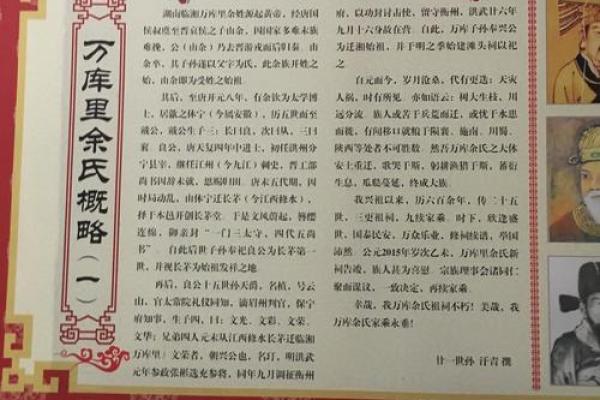 万库里余氏概略（一）
湖南临湘万库里余姓源起黄帝，经唐国
侯叔虞至晋哀侯之子由余，因国家多难末族
难挽，公（由余）乃去晋游戎而后归秦。由
余卒，其子孙遂以父字为氏，此余族开姓之
始，由余即为受姓之始祖。
其后，至唐开元八年，有余钦为太学博
士，居歙之休宁（今属安徽），历五世而至
戴公，戴公生子三：长曰良，次曰从，三曰
襄。良公，唐天复四年中进士，初任洪州分
宁县宰，继任江州（今九江）刺史，晋工部
尚书因辞未就，恩赐归田。唐末五代期，因
时局动乱，由休宁迁长茅（今江西修水），
择于本邑开创长茅堂。于是文风蔚起，簪缨
连绵，御亲封“一门三太守，四代五尚
书”。自此后世子孙奉祀良公为长茅第一
世，并视长茅为始祖发祥之地。
再后，良公十五世孙天爵，名桢，号云
山，官太常院礼仪同知，谪眉州判官，保宁
府知事，生子四，曰：文光、文彩、文荣、
文华；兄弟四人元末从江西修水长茅迁临湘
万库里；文荣者，朝兴公也，名玎，明洪武
元年参政张彬选充参将，同年九月调征衡州
府，以功封讨击使，留守衡州，洪武廿六年
九月十六身故在营。自此，万库子孙奉兴公
为迁湘始祖，并于明之季始建滩头祠以祀
之。
自元而今，岁月沧桑，代有更迭：天灾
人祸，时有所见。亦如语云：树大生枝，川
远分流。族人或苦于兵荒而迁，或忧于水患
而徙，有闻移口就粮于陽襄、施南、川蜀、
陕西等处者不可胜数。然吾万库余氏之大体
安土重迁，歌哭于斯，躬耕渔猎于斯，蕃衍
生息，瓜瓞蔓延，终成大族。
我兴祖以来，历六百余年，传二十五
世，三更祖祠，九续家乘。时下，欣逢盛
世，国泰民安，万众乐业，修祠续谱，举国
沛然。公元2015年岁次乙未，万库里余氏新
祠告竣，族人甚为喜慰。宗族理事会诸同仁
聚而谋议，一致决定，再续家乘。
幸哉，我万库余氏祖祠不朽！美哉，我
万库余氏家乘永垂！
廿一世孙 汗青 撰